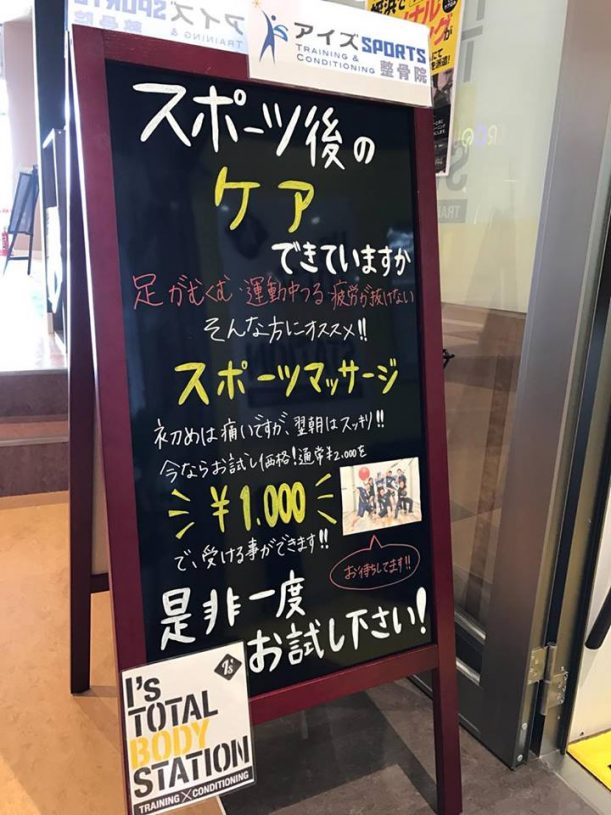 アイズSPORTS
TRAINING &
CONDITIONING 整骨院
スポーツ後の
ケア
できていますか
足がむくむ・運動中つる・疲労が抜けない
そんな方にオススメ!!
スポーツマッサージ
初めは痛いですが、翌朝はスッキリ!!
今ならお試し価格!通常¥2.000を
¥1.000
で、受ける事ができます!!
お待ちしてます!!
是非一度
お試し下さい!
I's
I'S
TOTAL
BODY
STATION
TRAINING X CONDITIONING